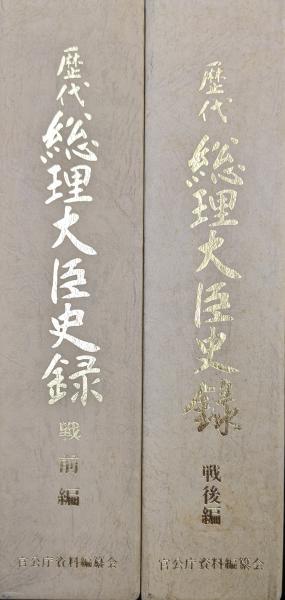 歴代
総理大臣史録
戦前編
官公庁資料編纂会
歴代
総理大臣史録
戦後編
官公庁資料編纂会